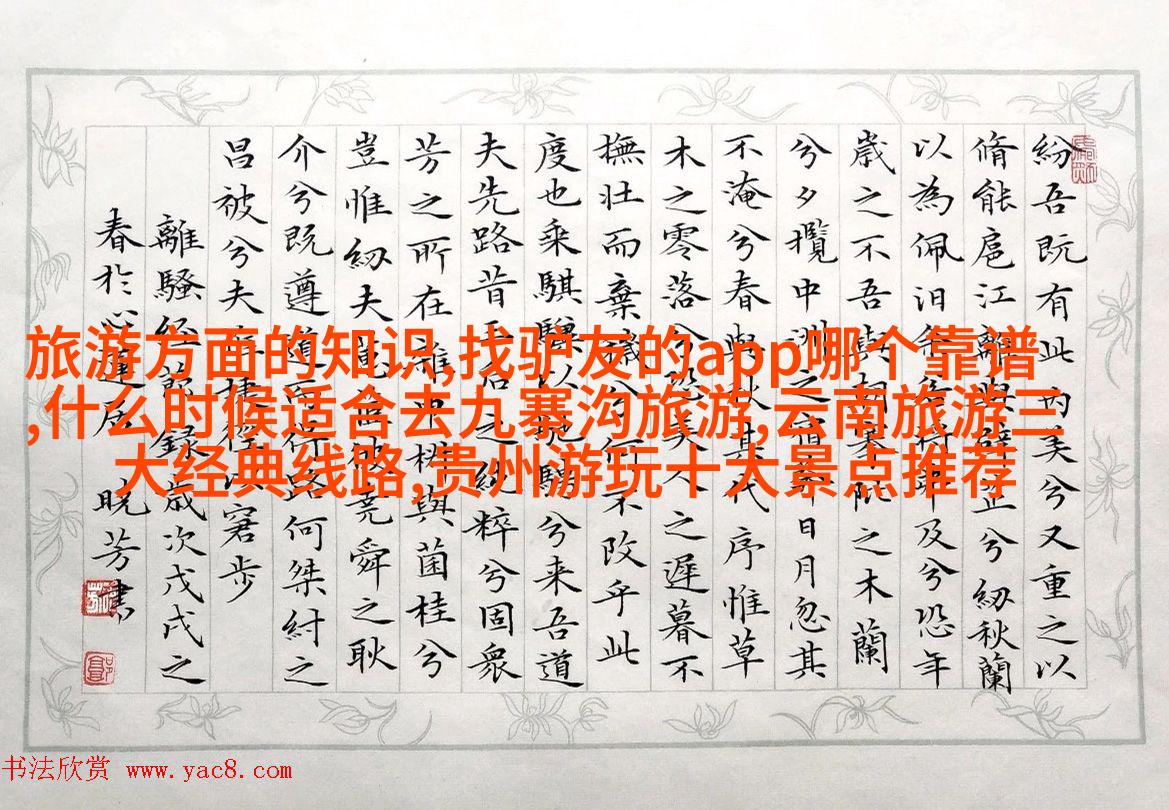 紛吾既有此內美兮又重之以
脩能扈江離與辟芷兮紉秋蘭
以為佩汩余若將弗及兮恐年
歲之不吾與朝搴阰之木蘭
兮夕攬中洲之宿莽日月忽其
不淹兮春與秋其代序惟草
木之零落兮恐美人之遲暮不
撫壯而棄穢兮何不改乎此
度也乘騏驥以馳騁兮来吾道
夫先路昔三后之純粹兮固衆
芳之所在雜申椒與菌桂兮
豈惟紉夫蕙茝彼堯舜之耿
介兮既遵道而得路何桀紂之
昌被兮夫唯捷徑以窘步
離騷經節錄歲次戊戌之
春於心蓮居 晓芳書
旅游方面的知识,找驴友的app哪个靠谱
,什么时候适合去九寨沟旅游,云南旅游三
大经典线路,贵州游玩十大景点推荐
书法欣赏 www.yac8.com